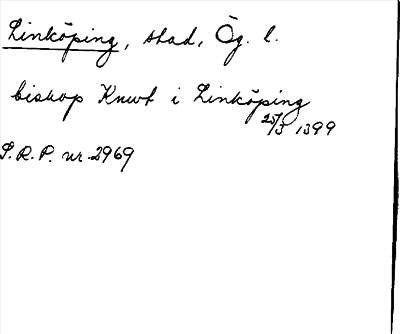 Linköping, stad, Ög. l.
biskop Knut i Linköping
25/3 1399
S.R.P. nr 2969